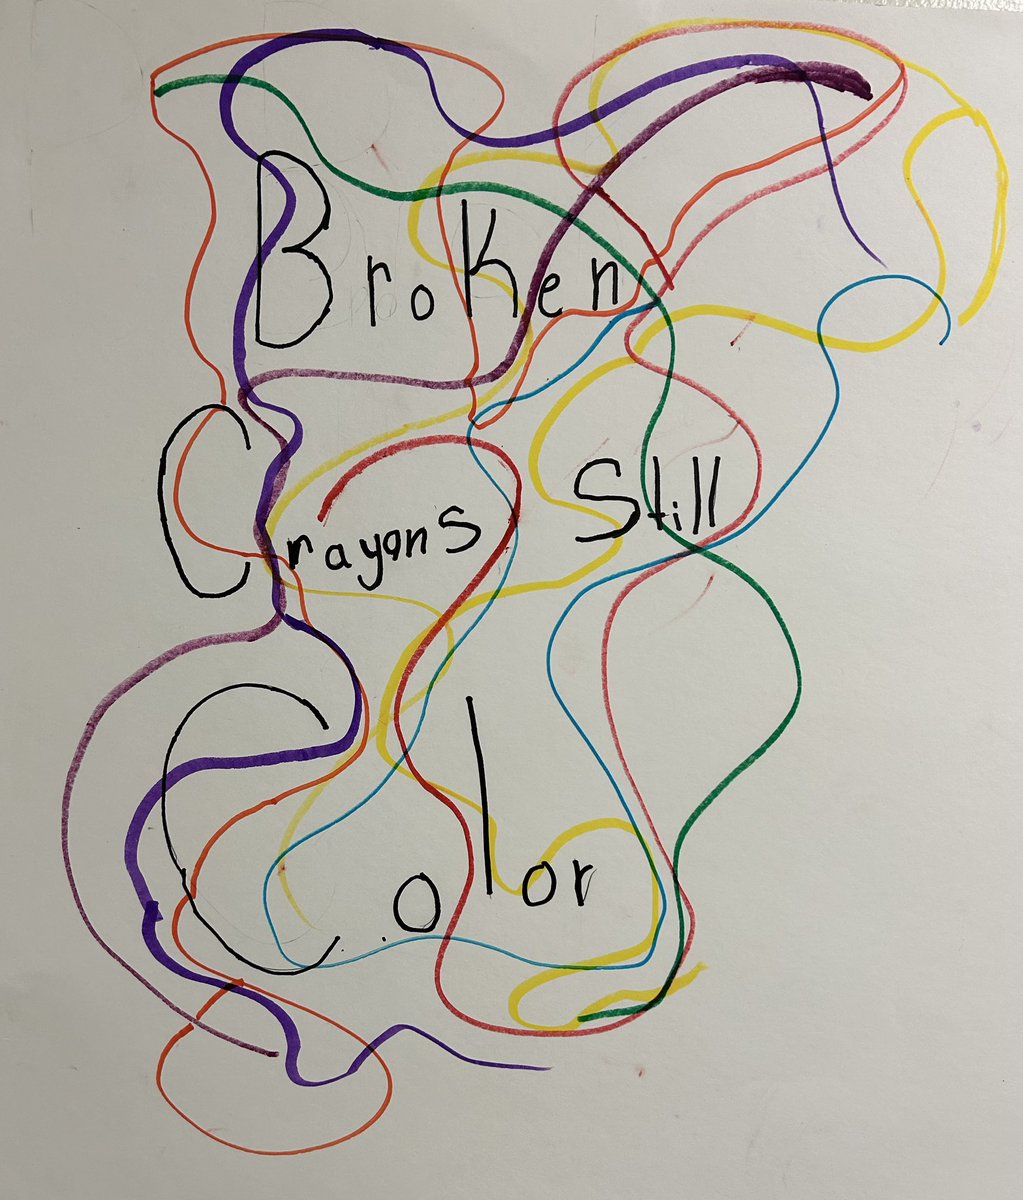 Broken
Crayons Still
Color